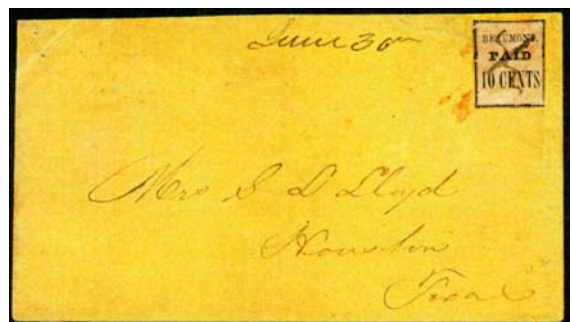 June 30th
BEAUMONT,
PAID
10 CENTS
Mrs S D Lloyd
Houston
Texas